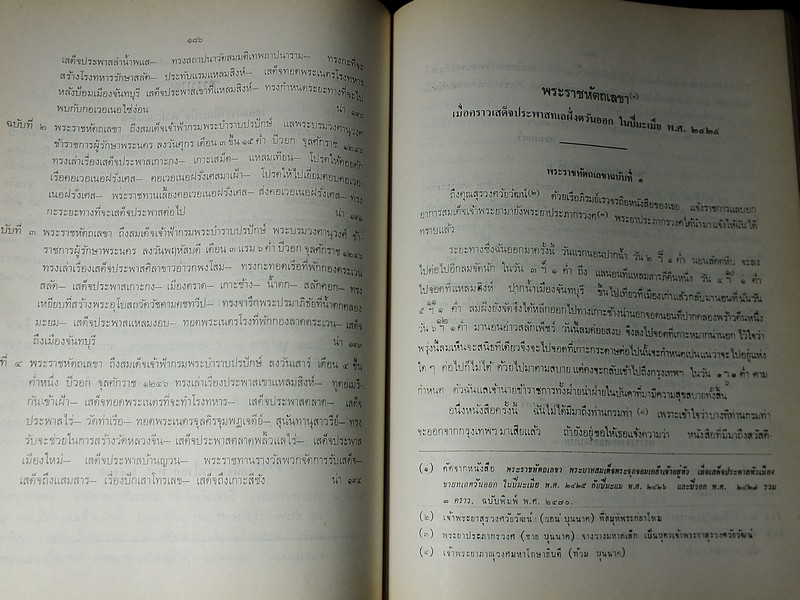 ๑๘๖
เสด็จประพาสลำน้ำพแส— ทรงสถาปนาวัดสมมติเทพถาปนาราม— ทรงกะที่จะ
สร้างโรงทหารรักษาสลัด— ประทับแรมแหลมสิงห์— เสด็จทอดพระเนตรโรงทหาร
หลังป้อมเมืองจันทบุรี เสด็จประพาสเขาที่แหลมสิงห์— ทรงกำหนดระยะทางที่จะไป
พบกับกอเวอเนอไซ่ง่อน น่า ๑๙๐
ฉบับที่ ๒ พระราชหัตถเลขา ถึงสมเด็จเจ้าฟ้ากรมพระบำราบปรปักษ์ แลพระบรมวงศานุวงศ์
ข้าราชการผู้รักษาพระนคร ลงวันศุกร เดือน ๓ ขึ้น ๑๕ ค่ำ ปีวอก จุลศักราช ๑๒๔๖
ทรงเล่าเรื่องเสด็จประพาสเกาะกง— เกาะเสม็ด— แหลมเทียน— โปรดให้คอยดัก
เรือคอเวอเนอฝรั่งเศส— คอเวอเนอฝรั่งเศสมาเฝ้า— โปรดให้ไปเยี่ยมตอบคอเวอ
เนอฝรั่งเศส— พระราชทานเลี้ยงคอเวอเนอฝรั่งเศส— ส่งคอเวอเนอฝรั่งเศส— ทรง
กะระยะทางที่จะเสด็จประพาสต่อไป น่า ๑๙๑
บับที่ ๓ พระราชหัตถเลขา ถึงสมเด็จเจ้าฟ้ากรมพระบำราบปรปักษ์ พระบรมวงศานุวงศ์ ข้า
ราชการผู้รักษาพระนคร ลงวันพฤหัสบดี เดือน ๓ แรม ๖ ค่ำ ปีวอก จุลศักราช ๑๒๔๖
ทรงเล่าเรื่องเสด็จประพาสศิลาขาวอ่าวกพงโสม— ทรงกะทอดเรือที่พักกองตระเวน
สลัด— เสด็จประพาสเกาะกง— เมืองตราด— เกาะช้าง— น้ำตก— สลักคอก— ทรง
เหยียบที่สร้างพระอุโบสถวัดวัชคามคชทวีป— ทรงจารึกพระปรมาภิธัยที่น้ำตกคลอง
มะยม— เสด็จประพาสแหลมงอบ— ทอดพระเนตรโรงที่พักกองลาดตระเวน— เสด็จ
ถึงเมืองจันทบุรี น่า ๑๙๓
ที่ ๔ พระราชหัตถเลขา ถึงสมเด็จเจ้าฟ้ากรมพระบำราบปรปักษ์ ลงวันเสาร์ เดือน ๔ ขึ้น
ค่ำหนึ่ง ปีวอก จุลศักราช ๑๒๔๖ ทรงเล่าเรื่องประพาสเขาแหลมสิงห์— ทูตอเมริ
กันเข้าเฝ้า— เสด็จทอดพระเนตรที่จะทำโรงทหาร— เสด็จประพาสตลาด— เสด็จ
ประพาสไร่— วัดท่าเรือ— ทอดพระเนตรจุลศิรจุมพฎเจดีย์— สุนันทานุสาวรีย์— ทรง
รับจะช่วยในการสร้างวัดหลวงจีน— เสด็จประพาสตลาดพลิ้วแลไร่— เสด็จประพาส
เมืองใหม่— เสด็จประพาสบ้านญวน— พระราชทานรางวัลพวกจัดการรับเสด็จ—
เสด็จถึงแสมสาร— เรื่องปักเสาโทรเลข— เสด็จถึงเกาะสีชัง น่า ๑๙๔
พระราชหัตถเลขา(๑)
เมื่อคราวเสด็จประพาสทเลฝั่งตวันออก ในปีมะเมีย พ.ศ. ๒๔๒๕
พระราชหัตถเลขาฉบับที่ ๑
ถึงคุณสุรวงศวัยวัฒน์(๒) ด้วยเรือภิรมย์เรวจรถือหนังสือของเธอ แจ้งราชการแลบอก
อาการสมเด็จเจ้าพระยามายังพระยาประภากรวงศ์(๓) พระยาประภากรวงศ์ได้นำมาแจ้งให้ฉันได้
ทราบแล้ว
ระยะทางซึ่งฉันออกมาครั้งนี้ วันแรกนอนปากน้ำ วัน ๒ ฯ ๑ ค่ำ นอนสัตหีบ จะลง
ไปต่อไปอีกลมจัดนัก ในวัน ๓ ฯ ๑ ค่ำ ถึง แลนอนที่แหลมสารภีคืนหนึ่ง วัน ๔ ฯ ๑ ค่ำ
ไปจอดที่แหลมสิงห์ ปากน้ำเมืองจันทบุรี ขึ้นไปเที่ยวที่เมืองเก่าแล้วกลับมานอนที่นั้นวัน
๕ ฯ ๑ ค่ำ ลมฝั่งยังจัดจึงได้หลีกออกไปทางเกาะช้างน่านอกจอดนอนที่ปากคลองพร้าวคืนหนึ่ง
วัน ๖ ฯ ๑ ค่ำ มานอนอ่าวสลักเพ็ชร์ วันนี้ลมค่อยสงบ จึงลงไปจอดที่เกาะหมากน่านอก ไว้ใจว่า
พรุ่งนี้ลมเห็นจะสนิทดีเดียวจึงจะไปจอดที่เกาะกระดาษต่อไปนั้นจะกำหนดเปนแน่ว่าจะไปอยู่แห่ง
ใด ๆ ต่อไปก็ไม่ได้ ด้วยไปมาตามสบาย แต่คงจะกลับเข้าไปถึงกรุงเทพฯ ในวัน ๑ ฯ ๑ ค่ำ ตาม
กำหนด ตัวฉันแลเจ้านายข้าราชการทั้งฝ่ายน่าฝ่ายในบันดาที่มามีความสุขสบายทั้งสิ้น
อนึ่งหนังสือครั้งนี้ ฉันไม่ได้มีมาถึงท่านกรมท่า (๔) เพราะเข้าใจว่าบางทีท่านกรมท่า
จะออกจากกรุงเทพฯ มาเสียแล้ว ถ้ายังอยู่ขอให้เธอแจ้งความว่า หนังสือที่มีมาถึงสวัสดิ
(๑) คัดจากหนังสือ พระราชหัตถเลขา พระบาทสมเด็จพระจุลจอมเกล้าเจ้าอยู่หัว เมื่อเสด็จประพาสหัวเมือง
ชายทเลตวันออก ในปีมะเมีย พ.ศ. ๒๔๒๕ กับปีมะแม พ.ศ. ๒๔๒๖ และปีวอก พ.ศ. ๒๔๒๗ รวม
๓ คราว, ฉบับพิมพ์ พ.ศ. ๒๔๗๐.
(๒) เจ้าพระยาสุรวงศวัยวัฒน์ (วอน บุนนาค) ที่สมุหพระกลาโหม
(๓) พระยาประภากรวงศ์ (ชาย บุนนาค) จางวางมหาดเล็ก เป็นบุตรเจ้าพระยาสุรวงศวัยวัฒน์
(๔) เจ้าพระยาภาณุวงศมหาโกษาธิบดี (ท้วม บุนนาค)